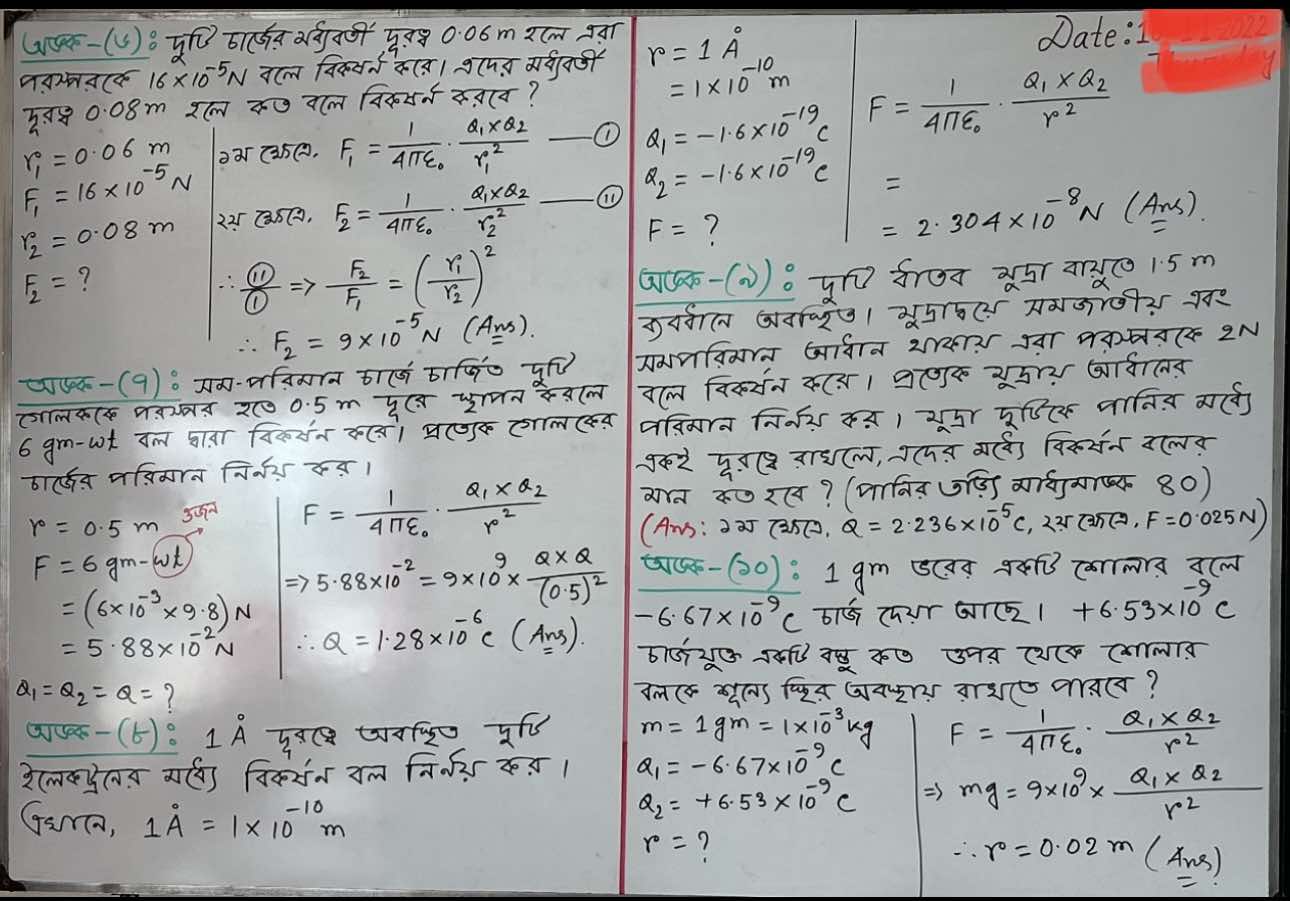 অঙ্ক-(৬): দুটি চার্জের মধ্যবর্তী দূরত্ব 0.06 m হলে এরা
পরস্পরকে 16×10⁻⁵N বলে বিকর্ষন করে। এদের মধ্যবর্তী
দূরত্ব 0.08 m হলে কত বলে বিকর্ষন করবে?
r₁ = 0.06 m
F₁ = 16×10⁻⁵ N
r₂ = 0.08 m
F₂ = ?
১ম ক্ষেত্রে, F₁ = 1/4πε₀ · Q₁×Q₂/r₁² —— (I)
২য় ক্ষেত্রে, F₂ = 1/4πε₀ · Q₁×Q₂/r₂² —— (II)
∴ (II)/(I) => F₂/F₁ = (r₁/r₂)²
∴ F₂ = 9×10⁻⁵ N (Ans).
অঙ্ক-(৭): সম-পরিমান চার্জে চার্জিত দুটি
গোলককে পরস্পর হতে 0.5 m দূরে স্থাপন করলে
6 gm-wt বল দ্বারা বিকর্ষন করে। প্রত্যেক গোলকের
চার্জের পরিমান নির্নয় কর।
r = 0.5 m
ওজন
F = 6 gm-wt
= (6×10⁻³ × 9.8) N
= 5.88×10⁻² N
Q₁ = Q₂ = Q = ?
F = 1/4πε₀ · Q₁×Q₂/r²
=> 5.88×10⁻² = 9×10⁹ × Q×Q/(0.5)²
∴ Q = 1.28×10⁻⁶ C (Ans).
অঙ্ক-(৮): 1 Å দূরত্বে অবস্থিত দুটি
ইলেকট্রনের মধ্যে বিকর্ষন বল নির্নয় কর।
এখানে, 1 Å = 1×10⁻¹⁰ m
Date:
r = 1 Å
= 1×10⁻¹⁰ m
Q₁ = -1.6×10⁻¹⁹ C
Q₂ = -1.6×10⁻¹⁹ C
F = ?
F = 1/4πε₀ · Q₁×Q₂/r²
=
= 2.304×10⁻⁸ N (Ans).
অঙ্ক-(৯): দুটি ধাতব মুদ্রা বায়ুতে 1.5 m
ব্যবধানে অবস্থিত। মুদ্রাদ্বয়ে সমজাতীয় এবং
সমপরিমান আধান থাকায় এরা পরস্পরকে 2N
বলে বিকর্ষন করে। প্রত্যেক মুদ্রায় আধানের
পরিমান নির্নয় কর। মুদ্রা দুটিকে পানির মধ্যে
একই দূরত্বে রাখলে, এদের মধ্যে বিকর্ষন বলের
মান কত হবে? (পানির তড়িৎ মাধ্যমাঙ্ক 80)
(Ans: ১ম ক্ষেত্রে, Q = 2.236×10⁻⁵C, ২য় ক্ষেত্রে, F = 0.025N)
অঙ্ক-(১০): 1 gm ভরের একটি শোলার বলে
-6.67×10⁻⁹ C চার্জ দেয়া আছে। +6.53×10⁻⁹ C
চার্জযুক্ত একটি বস্তু কত উপর থেকে শোলার
বলকে শূন্যে স্থির অবস্থায় রাখতে পারবে?
m = 1 gm = 1×10⁻³ kg
Q₁ = -6.67×10⁻⁹ C
Q₂ = +6.53×10⁻⁹ C
r = ?
F = 1/4πε₀ · Q₁×Q₂/r²
=> mg = 9×10⁹ × Q₁×Q₂/r²
∴ r = 0.02 m (Ans).